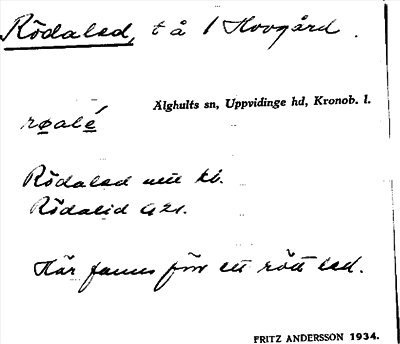 Rödaled, t å 1 Hovgård.
Älghults sn, Uppvidinge hd, Kronob. l.
røalé
Rödaled utt kb.
Rödalid G 21.
Här fanns förr ett rött led.
FRITZ ANDERSSON 1934.